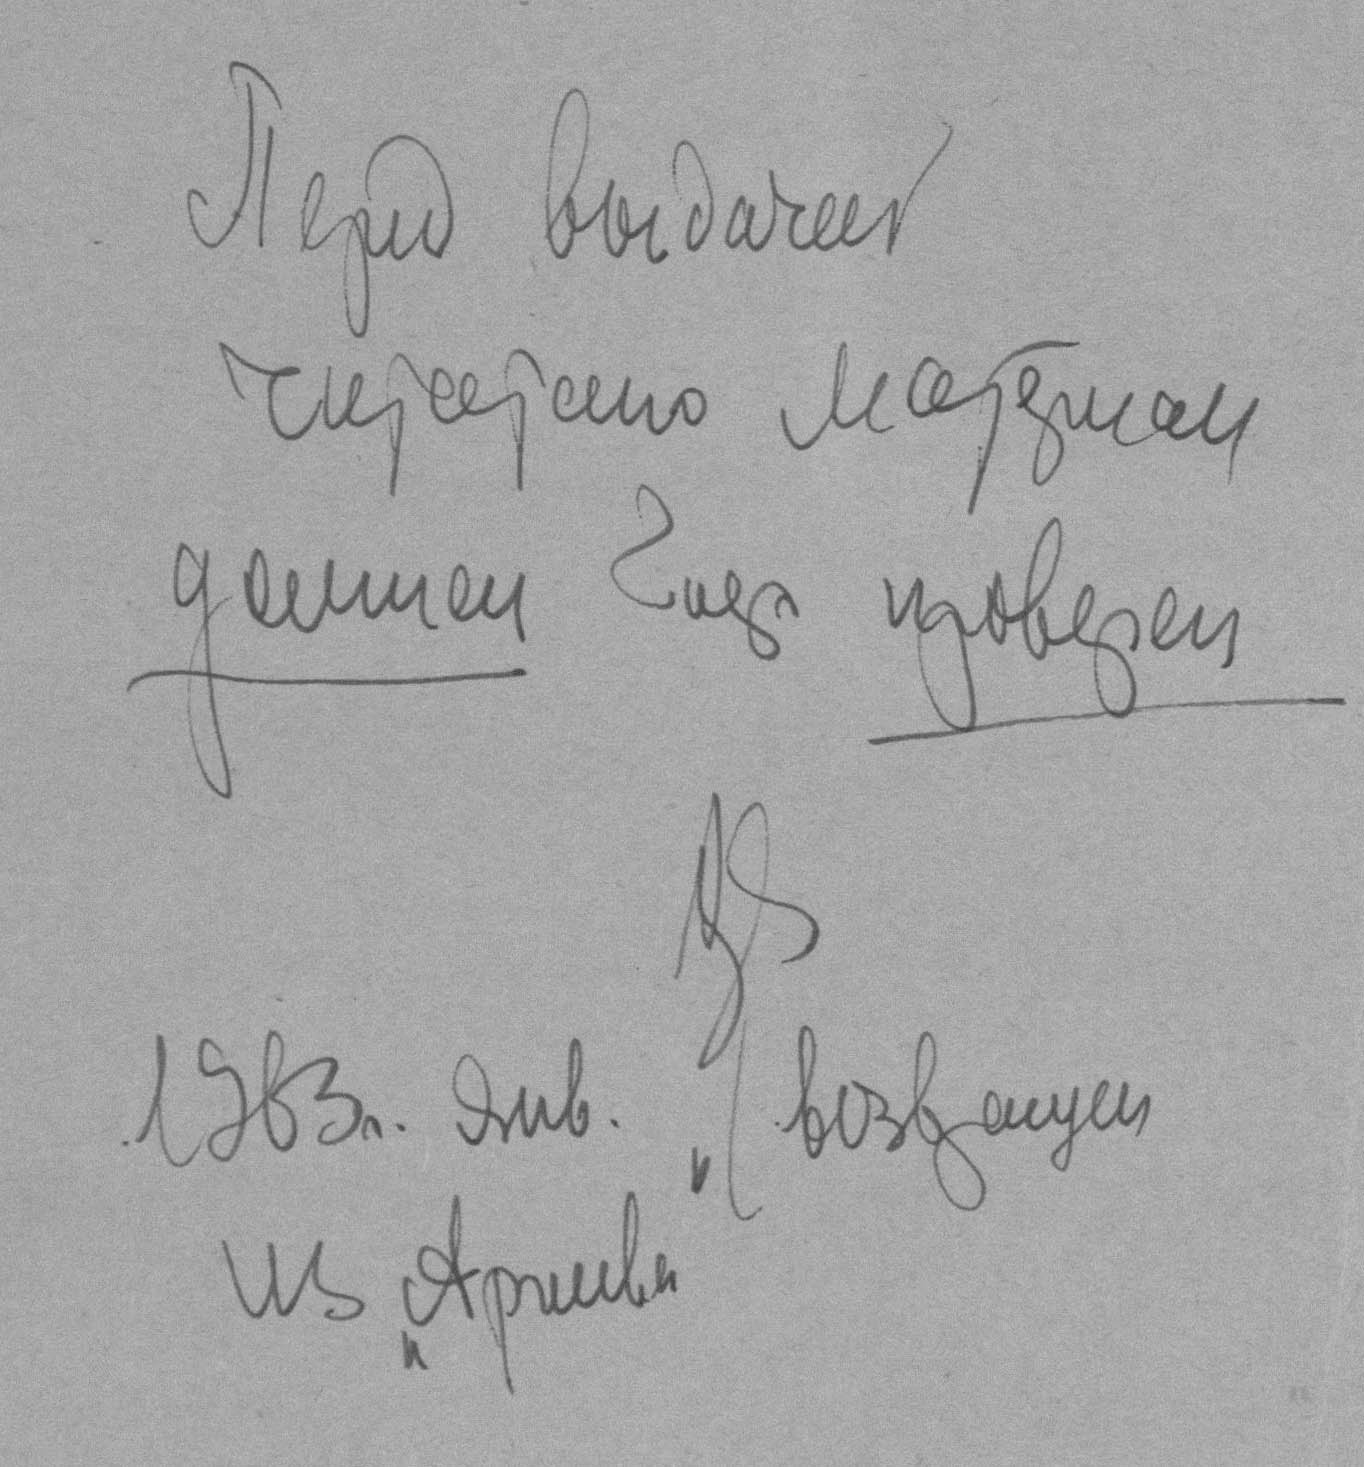 Перед выдачей
читателю материал
должен быть проверен
1983 г. янв. возвращен
из „Архива"